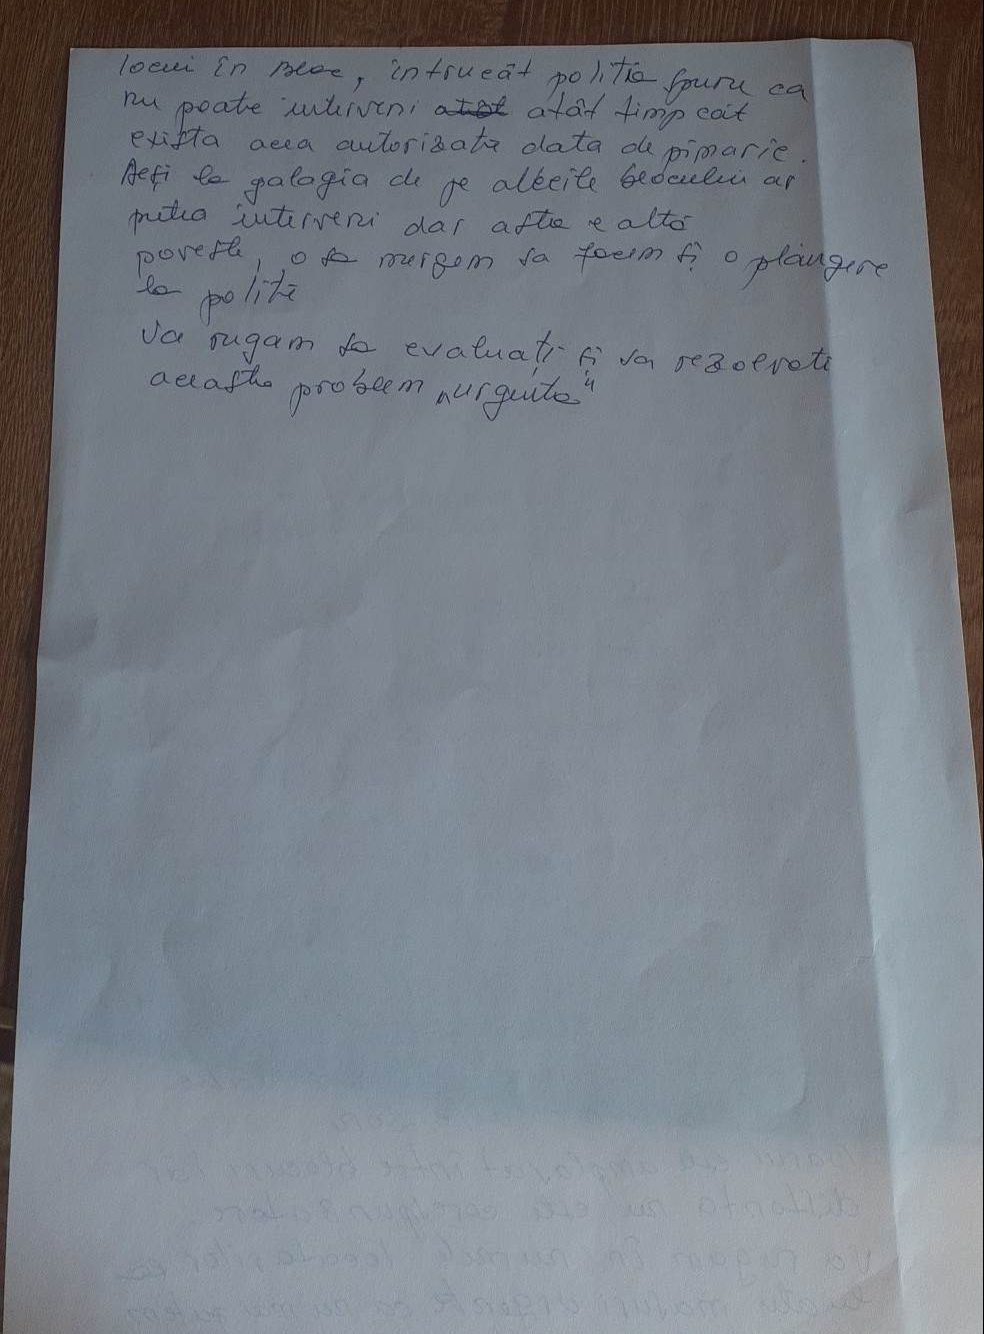 locui în Bloc, întrucât politia spune ca
nu poate interveni atât timp cât
exista acea autorizatie data de pimarie.
Deși la galagia de pe aleeile blocului ar
putea interveni dar asta e alta
poveste, o sa mergem sa facem și o plângere
la politie
Va rugam sa evaluați și sa rezolvati
aceasta problem „urgenta"